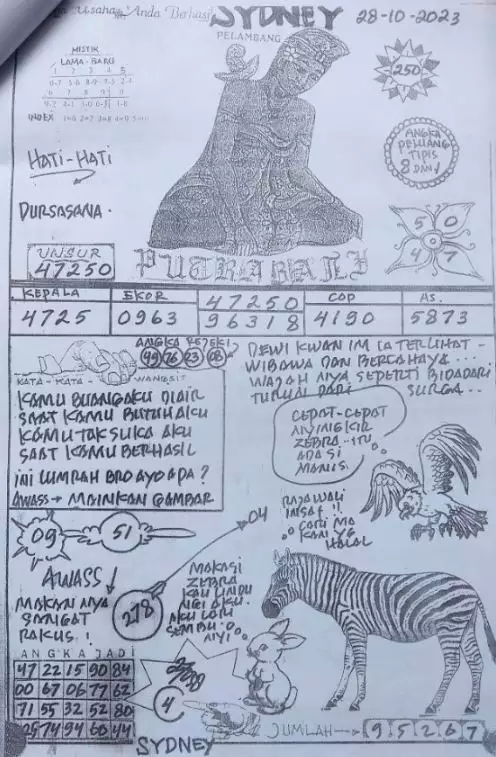 Usaha Anda Berhasil
SYDNEY
28-10-2023
PELAMBANG
MISTIK
LAMA - BARU
1 2 3 4 5
6 7 8 9 0
INDEX
250
ANGKA
PELUANG
TIPIS
8 DAN 1
HATI-HATI
DURSASANA.
5 0
4 7
UNSUR
47250
PUTRA BALI
KEPALA
EKOR
47250
COP
AS.
4725
0963
96318
4190
5873
ANGKA REJEKI
49 76 23 08
KATA-KATA WANGSIT
KAMU BUANG AKU DI AIR
SAAT KAMU BUTUH AKU
KAMU TAK SUKA AKU
SAAT KAMU BERHASIL
INI LUMRAH BRO AYO APA?
AWASS → MAINKAN GAMBAR
DEWI KWAN IM LA TERLIHAT -
WIBAWA DAN BERCAHAYA ...
WAJAH NYA SEPERTI BIDADARI
TURUN DARI SURGA...
CEPAT-CEPAT
NYINGKIR
ZEBRA-ITU
ADA SI
MANIS.
RAJAWALI
INSAF !!
CARI MA
KAN YG
HALAL
09
51
04
AWASS !
MAKAN NYA
SANGAT
RAKUS !
278
MAKASI
ZEBRA
KAU LINDU
NGI AKU.
AKU LARI
SEMBU
NYI
ANGKA JADI
47 22 15 90 84
00 67 06 77 62
71 55 32 52 80
25 74 94 60 44
4
JUMLAH → 9 5 2 6 7
SYDNEY